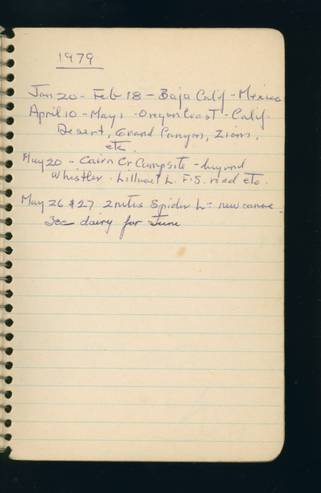 1979
Jan 20 - Feb 18 - Baja Calif - Mexico
April 10 - May 1 - Oregon Coast - Calif
Desert, Grand Canyon, Zions,
etc.
May 20 - Cairn Cr Campsite - beyond
Whistler. Lillooet L. F.S. road etc.
May 26 & 27 2 nites Spider L - new canoe.
See dairy for June